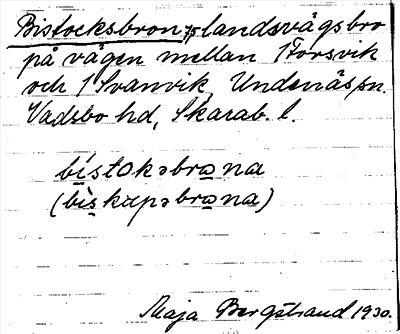 Bistocksbron, landsvägsbro
på vägen mellan 1 Forsvik
och 1 Svanvik, Undenäs sn.
Vadsbo hd, Skarab. l.
bístokəbrɷna
(bìskɷpəbrɷna)
Maja Bergstrand 1930.